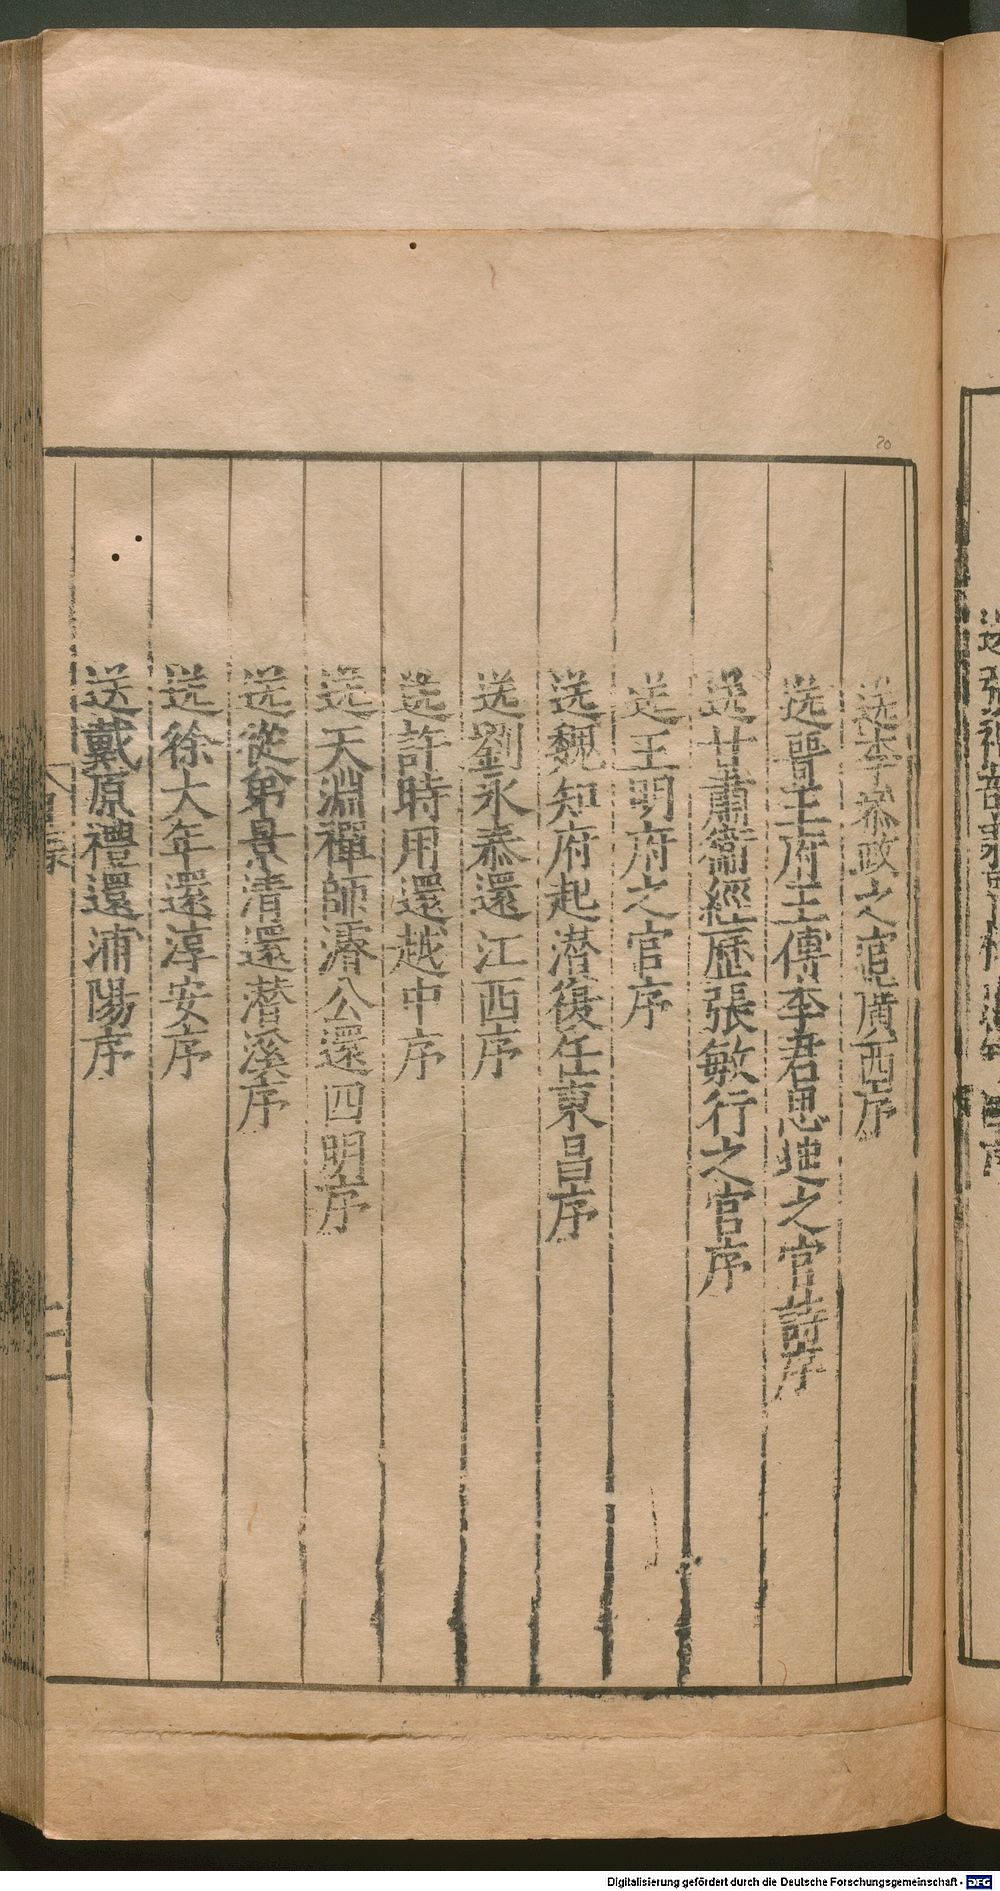 20
送李叅政之官廣西序
送晉王府王傅李君思迪之官詩序
送甘肅衛經歷張敏行之官序
送王明府之官序
送魏知府起潛復任東昌序
送劉永泰還江西序
送許時用還越中序
送天淵禪師濬公還四明序
送從弟景清還潛溪序
送徐大年還淳安序
送戴原禮還浦陽序
Digitalisierung gefördert durch die Deutsche Forschungsgemeinschaft - DFG